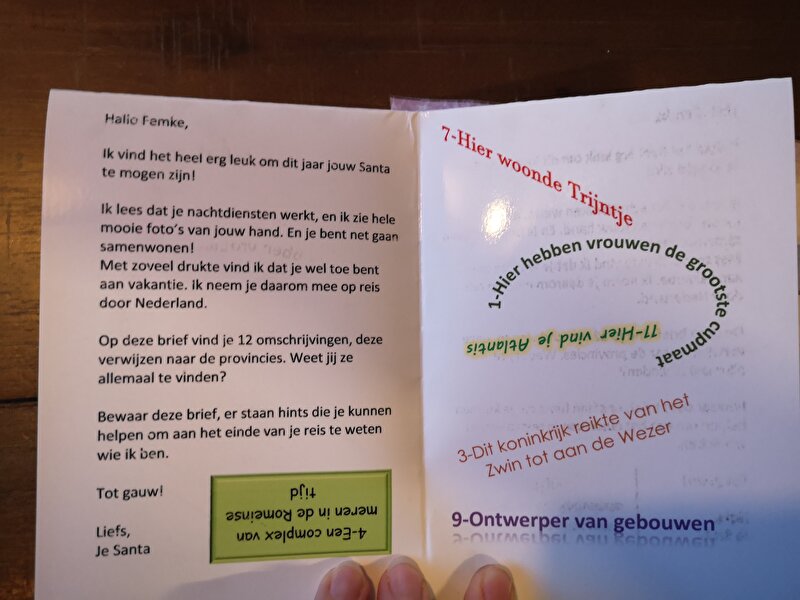 Hallo Femke,
Ik vind het heel erg leuk om dit jaar jouw Santa
te mogen zijn!
Ik lees dat je nachtdiensten werkt, en ik zie hele
mooie foto's van jouw hand. En je bent net gaan
samenwonen!
Met zoveel drukte vind ik dat je wel toe bent
aan vakantie. ik neem je daarom mee op reis
door Nederland.
Op deze brief vind je 12 omschrijvingen, deze
verwijzen naar de provincies. Weet jij ze
allemaal te vinden?
Bewaar deze brief, er staan hints die je kunnen
helpen om aan het einde van je reis te weten
wie ik ben.
Tot gauw!
Liefs,
Je Santa
4-Een complex van
meren in de Romeinse
tijd
7-Hier woonde Trijntje
1-Hier hebben vrouwen de grootste cupmaat
11-Hier vind je Atlantis
3-Dit koninkrijk reikte van het
Zwin tot aan de Wezer
9-Ontwerper van gebouwen